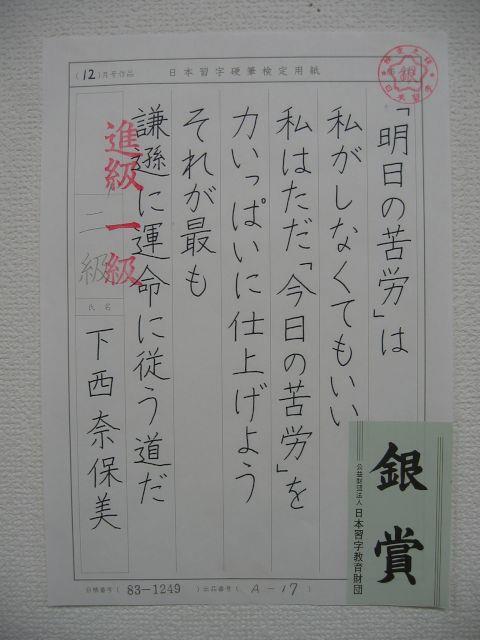 (12)月号作品
日本習字硬筆検定用紙
銀
日本習字
「明日の苦労」は
私がしなくてもいい
私はただ「今日の苦労」を
力いっぱいに仕上げよう
それが最も
謙遜に運命に従う道だ
進級 一級
二級
氏名
下西奈保美
銀賞
公益財団法人 日本習字教育財団
(83-1249)出荷番号(A-17)